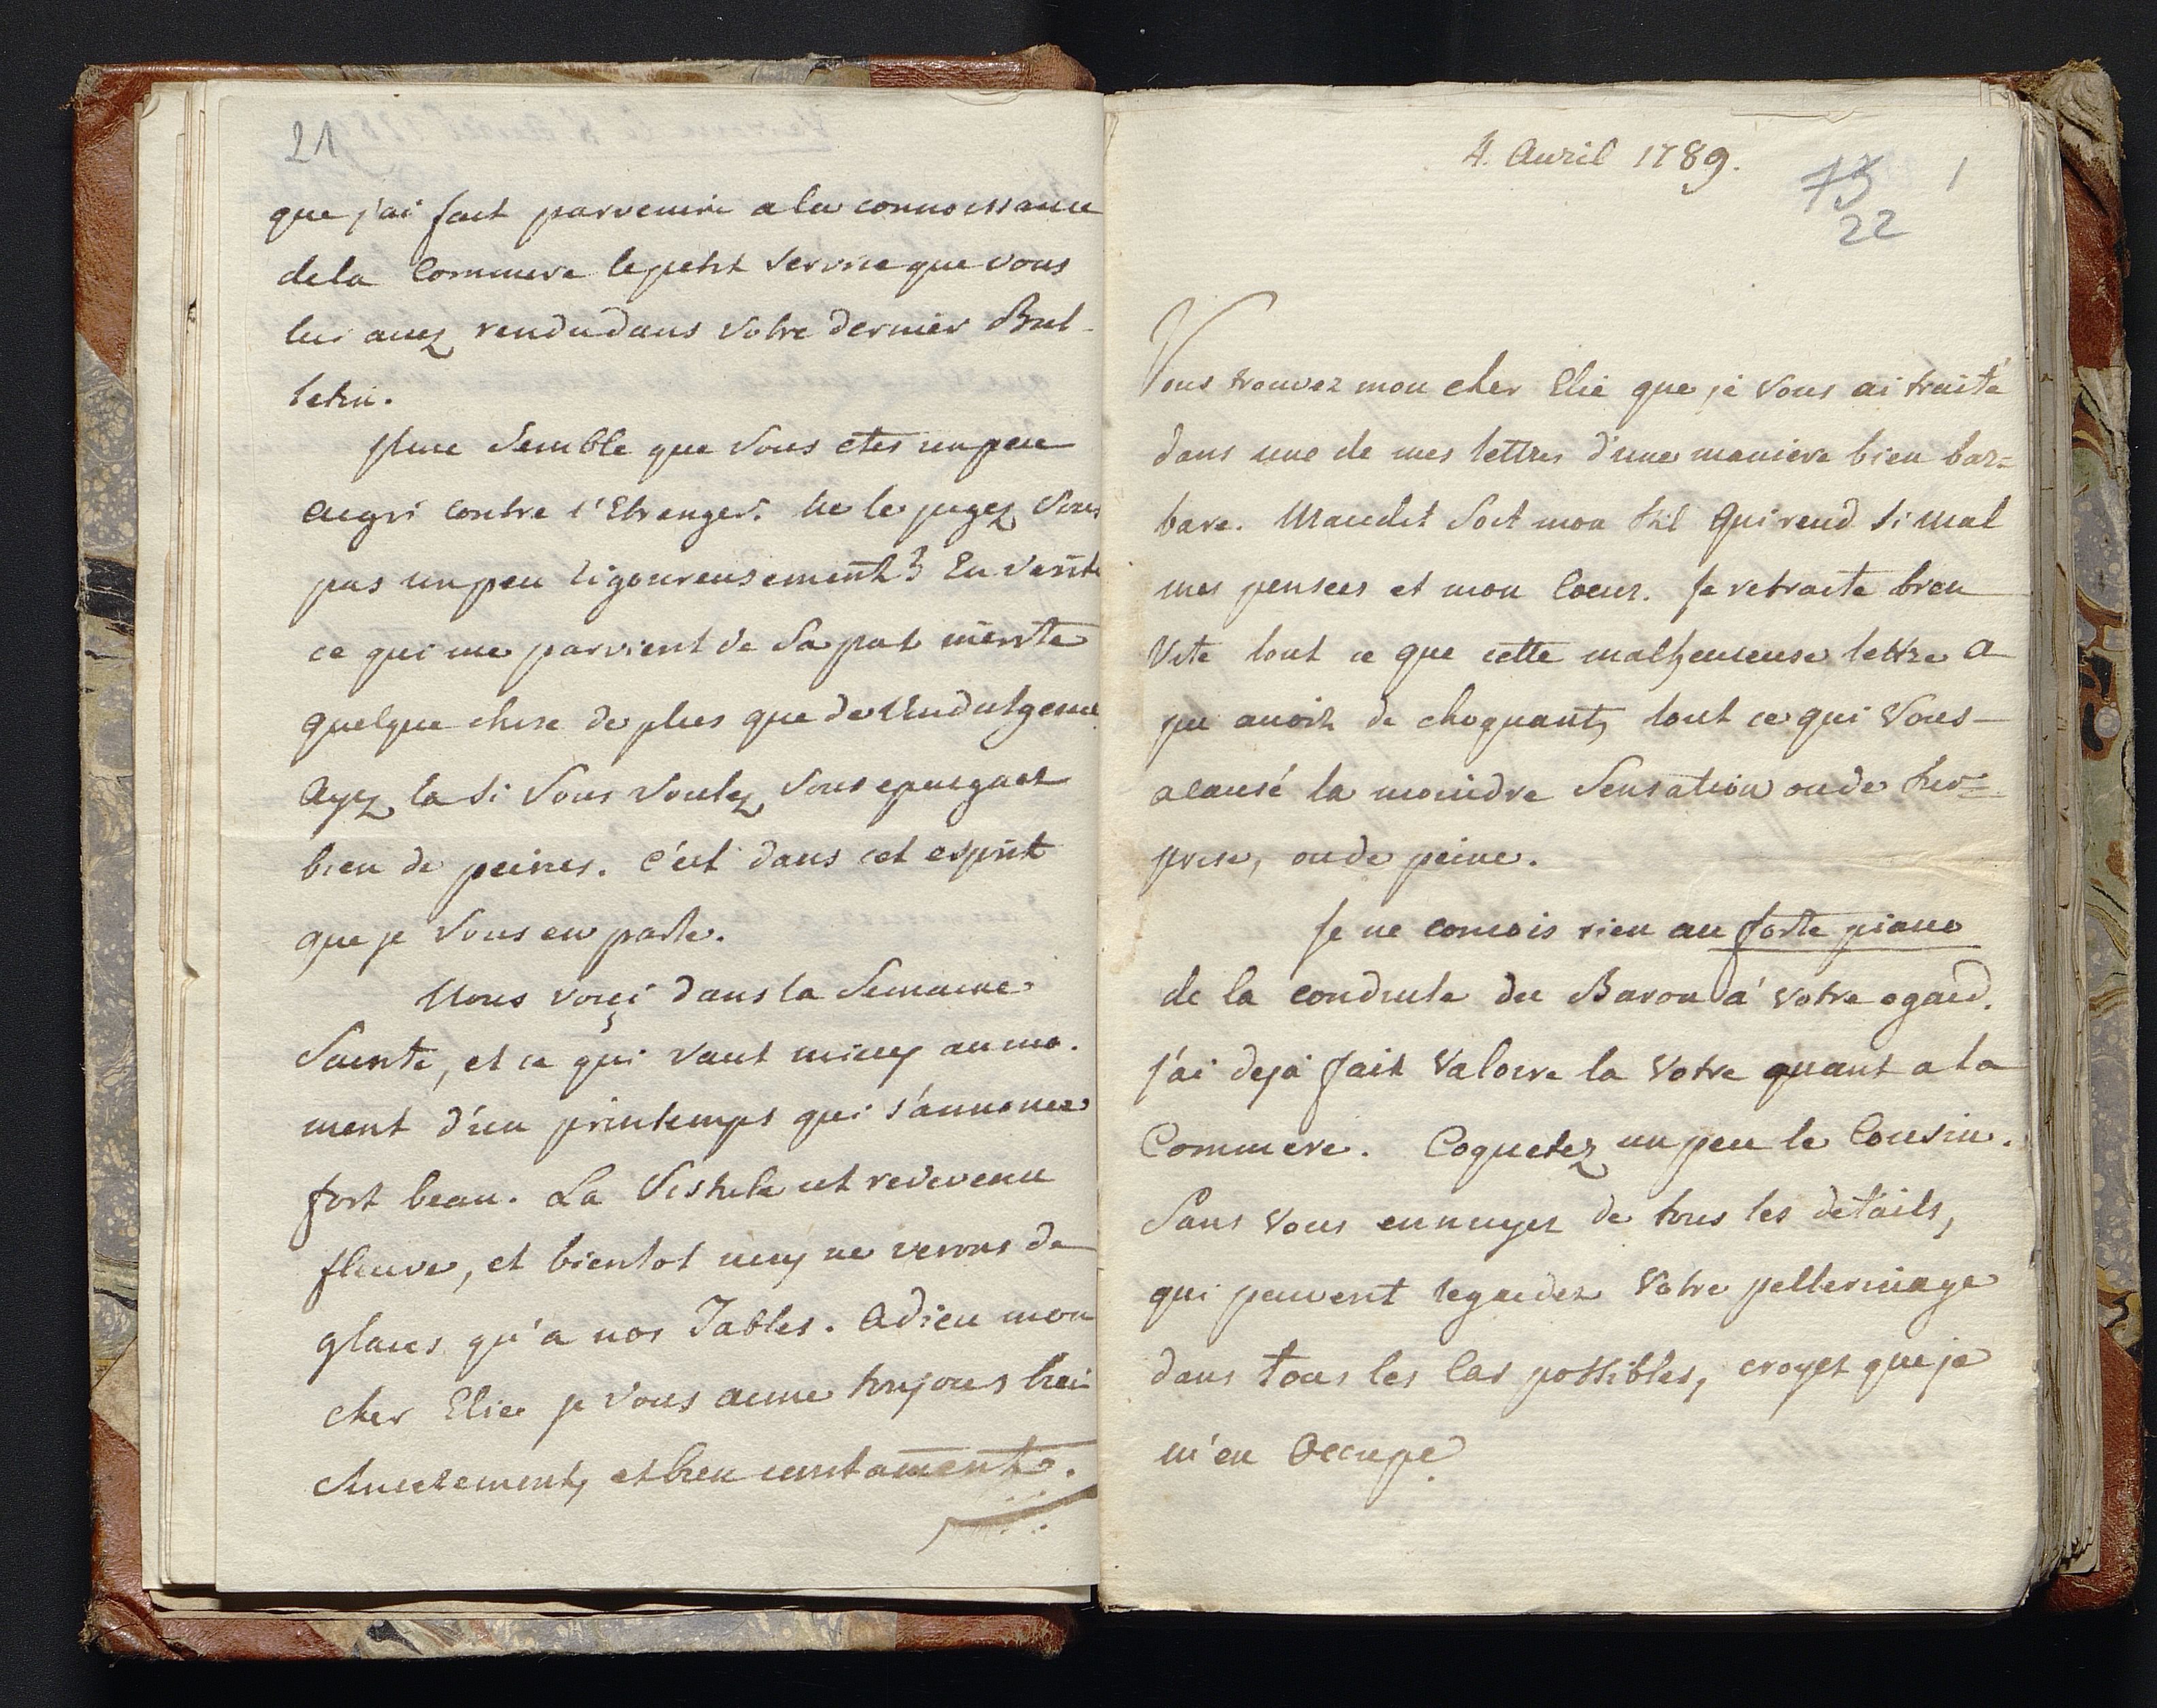 21
que j'ai fait parvenire a la connoissance
de la Commere le petit service que vous
lui avez rendu dans votre dernier Bul-
letin.
Il me semble que vous etes un peu
aigri contre l'Etranger. Ne le jugez vous
pas un peu rigoureusement? En verité
ce qui me parvient de sa part merite
quelque chose de plus que de l'Indulgence
Ayez la si vous voulez vous epargner
bien de peines. C'est dans cet esprit
que je vous en parle.
Nous voiçi dans la Semaine
Sainte, et ce qui vaut mieux au mo-
ment d'un printemps qui s'annonce
fort beau. La Vistule est redevenu
fleuve, et bientot nous ne verons de
glaces qu'a nos Tables. Adieu mon
cher Elie je vous aime toujours bien
sincerement, et bien constament.
4. Avril 1789.
73
1
22
Vous trouvez mon cher Elie que je vous ai traité
dans une de mes lettres d'une maniere bien bar=
bare. Maudit soit mon stil qui rend si mal
mes pensees et mon Coeur. Je retracte bien
vite tout ce que cette malheureuse lettre a
pu avoir de choquant, tout ce qui vous
a causé la moindre sensation ou de sur=
prise, ou de peine.
Je ne conçois rien au forte piano
de la conduite du Baron à votre egard.
j'ai deja fait valoire la votre quant a la
Commere. Coquetez un peu le Cousin.
Sans vous ennuyer de tous les details,
qui peuvent regarder votre pellerinage
dans tous les Cas possibles, croyez que je
m'en occupe